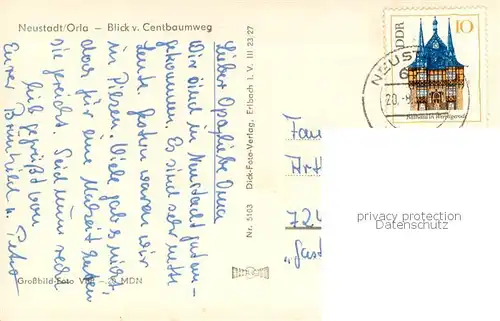 Neustadt/Orla – Blick v. Centbaumweg
Lieber Opa, liebe Oma
Wir sind in Neustadt gut an-
gekommen. Es sind sehr nette
Leute. Gestern waren wir
in Plesen. Viele gab es nicht,
das für eine Mahlzeit haben
sie gereicht. Seid nun recht
lieb gegrüßt von
Eurer Brunhild u. Petra
Großbild-Foto MDN
Nr. 5103 Dick-Foto-Verlag, Erlbach i. V. III 23 27
DDR
10
Rathaus in Wernigerode
NEUST
20.
724
„Gast
privacy protection
Datenschutz